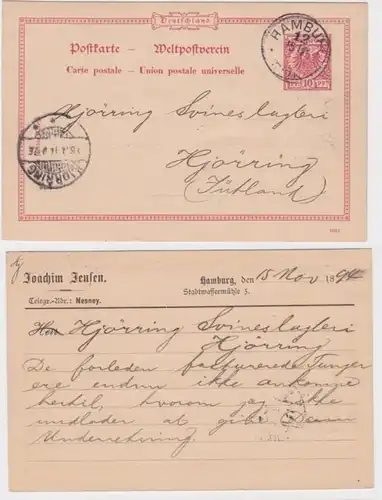 Deutschland
HAMBURG
12
Postkarte — Weltpostverein
Carte postale — Union postale universelle
10 PF 10
Hjörring Svineslagteri
Hjörring
(Jütland)
HJØRRING
Joachim Jensen.
Hamburg, den 15 Nov 1894
Stadtwassermühle 5.
Telegr.-Adr.: Nesney.
Hjörring Svineslagteri
Hjörring
De forleden fakturerede Tunger
ere endnu ikke ankomne
hertil, hvorom jeg ikke
undlader at give Dem
Underretning